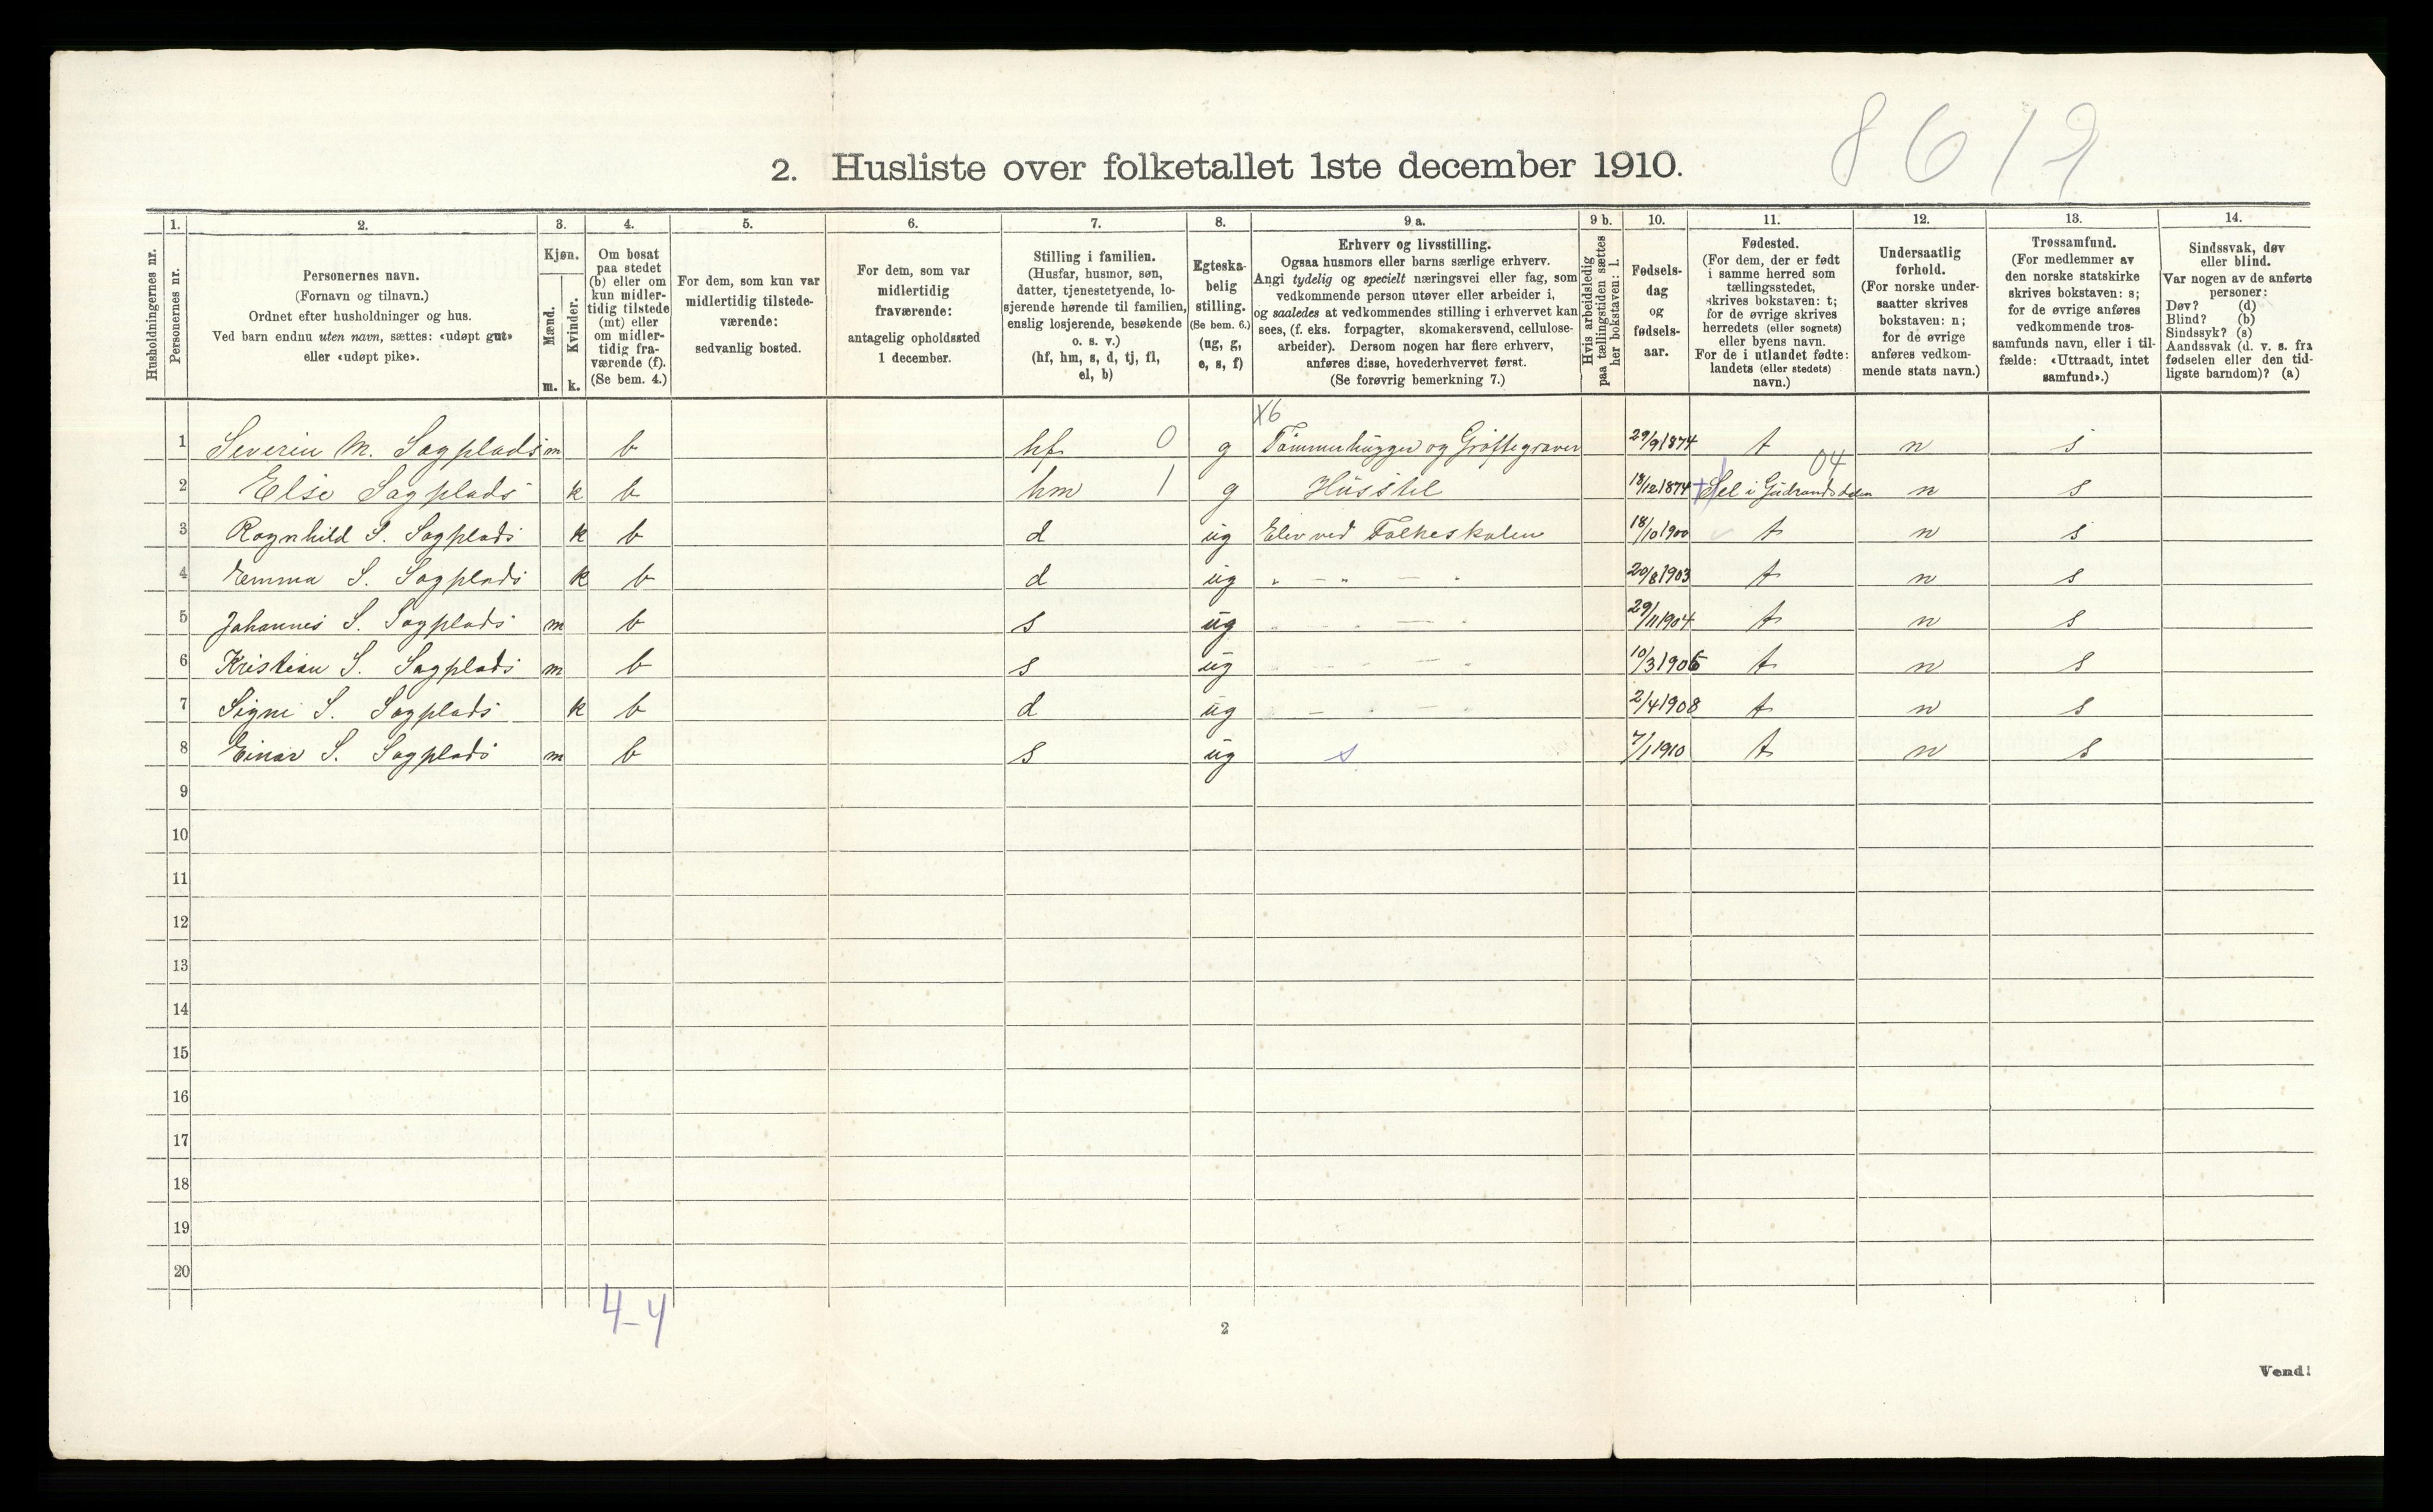 8 6 1 2
2. Husliste over folketallet 1ste december 1910.
1. 2. 3. 4. 5. 6. 7. 8. 9 a. 9 b. 10. 11. 12. 13. 14.
Husholdningernes nr.
Personernes nr.
Personernes navn.
(Fornavn og tilnavn.)
Ordnet efter husholdninger og hus.
Ved barn endnu uten navn, sættes: «udøpt gut»
eller «udøpt pike».
Kjøn.
Mænd.
Kvinder.
m. k.
Om bosat
paa stedet
(b) eller om
kun midler-
tidig tilstede
(mt) eller
om midler-
tidig fra-
værende (f).
(Se bem. 4.)
For dem, som kun var
midlertidig tilstede-
værende:
sedvanlig bosted.
For dem, som var
midlertidig
fraværende:
antagelig opholdssted
1 december.
Stilling i familien.
(Husfar, husmor, søn,
datter, tjenestetyende, lo-
sjerende hørende til familien,
enslig losjerende, besøkende
o. s. v.)
(hf, hm, s, d, tj, fl,
el, b)
Egteska-
belig
stilling.
(Se bem. 6.)
(ug, g,
e, s, f)
Erhverv og livsstilling.
Ogsaa husmors eller barns særlige erhverv.
Angi tydelig og specielt næringsvei eller fag, som
vedkommende person utøver eller arbeider i,
og saaledes at vedkommendes stilling i erhvervet kan
sees, (f. eks. forpagter, skomakersvend, cellulose-
arbeider). Dersom nogen har flere erhverv,
anføres disse, hovederhvervet først.
(Se forøvrig bemerkning 7.)
Hvis arbeidsledig
paa tællingstiden sættes
her bokstaven: l.
Fødsels-
dag
og
fødsels-
aar.
Fødested.
(For dem, der er født
i samme herred som
tællingsstedet,
skrives bokstaven: t;
for de øvrige skrives
herredets (eller sognets)
eller byens navn.
For de i utlandet fødte:
landets (eller stedets)
navn.)
Undersaatlig
forhold.
(For norske under-
saatter skrives
bokstaven: n;
for de øvrige
anføres vedkom-
mende stats navn.)
Trossamfund.
(For medlemmer av
den norske statskirke
skrives bokstaven: s;
for de øvrige anføres
vedkommende tros-
samfunds navn, eller i til-
fælde: «Uttraadt, intet
samfund».)
Sindssvak, døv
eller blind.
Var nogen av de anførte
personer:
Døv? (d)
Blind? (b)
Sindssyk? (s)
Aandssvak (d. v. s. fra
fødselen eller den tid-
ligste barndom)? (a)
X6
1 Severin M. Sagplads m b hf 0 g Tømmerhugger og Grøftegraver 29/9 1874 t n s
04
2 Else Sagplads k b hm 1 g Husstel 18/12 1874 Sel i Gudbrandsdalen n s
3 Ragnhild S. Sagplads k b d ug Elev ved Folkeskolen 18/10 1900 t n s
4 Emma S. Sagplads k b d ug " — " — " 20/8 1903 t n s
5 Johannes S. Sagplads m b s ug 29/11 1904 t n s
6 Kristian S. Sagplads m b s ug 10/3 1906 t n s
7 Signe S. Sagplads k b d ug 2/4 1908 t n s
8 Einar S. Sagplads m b s ug s 7/1 1910 t n s
9
10
11
12
13
14
15
16
17
18
19
20
4-4
2
Vend!